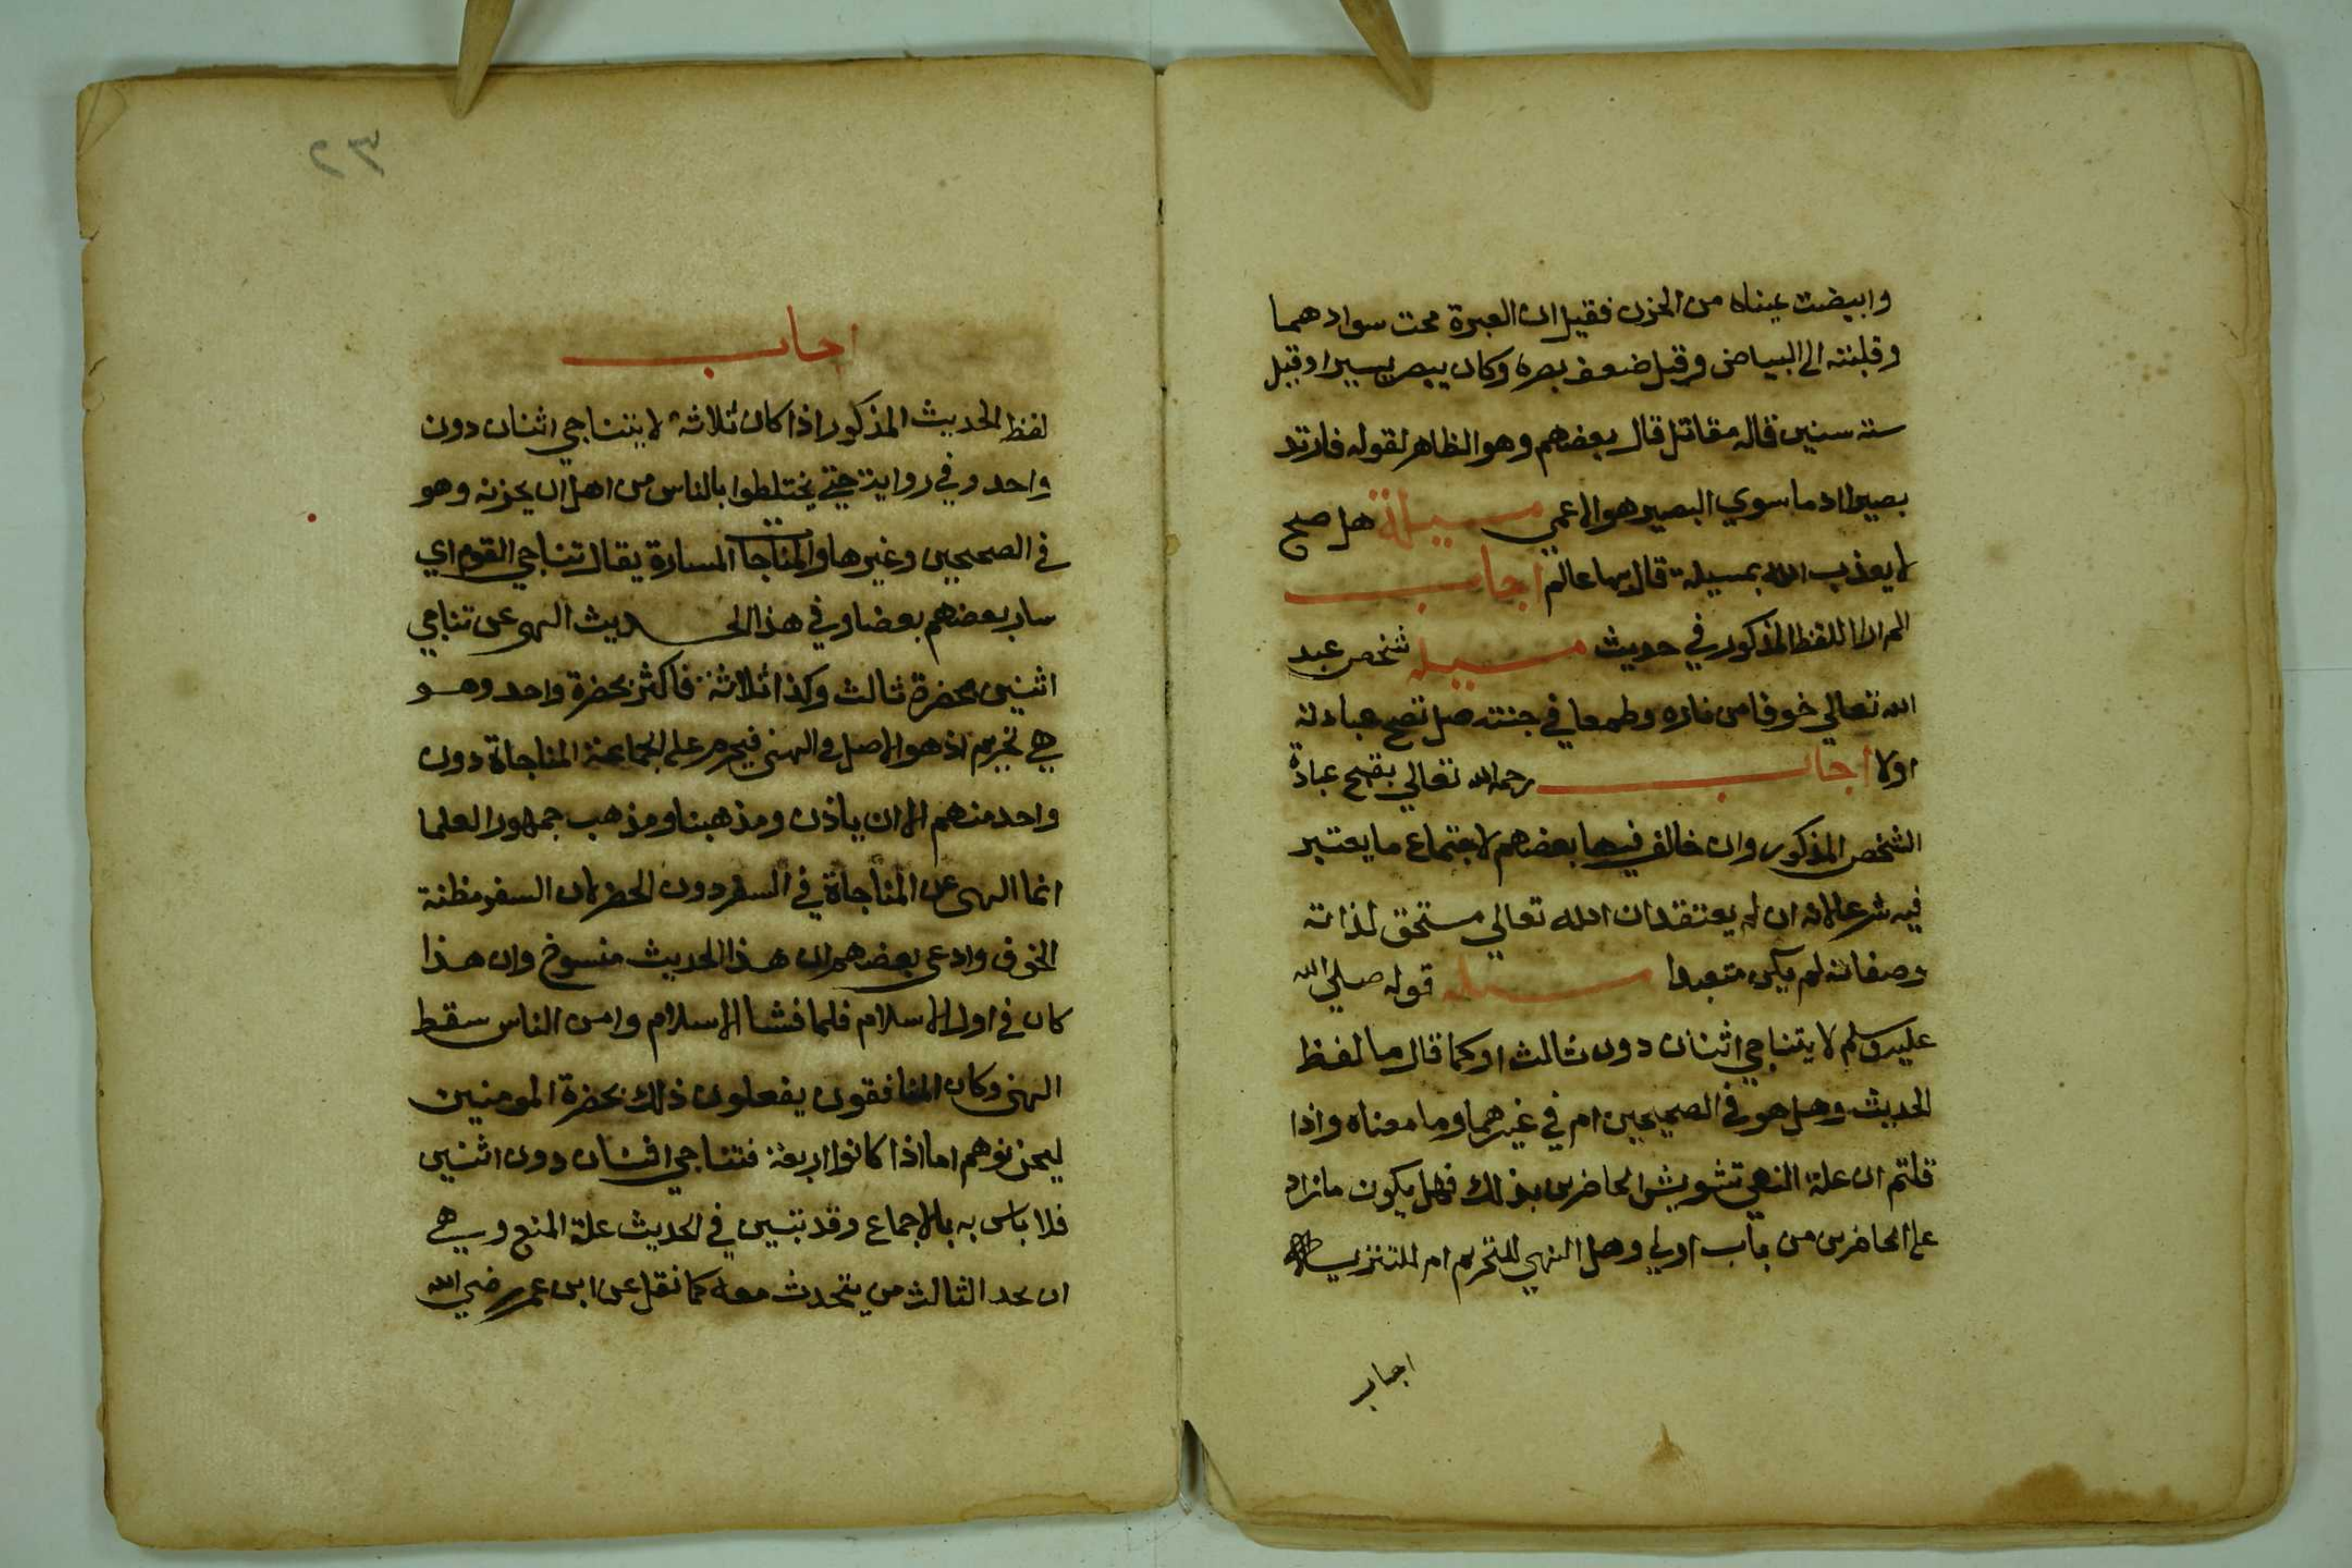 وابيضت عيناه من الحزن فقيل ان العبرة محت سوادهما
وقلبته الى البياض وقيل ضعف بصره وكان يبصر يسيرا وقيل
ستة سنين قاله مقاتل قال بعضهم وهو الظاهر لقوله فارتد
بصيرا اذ ما سوي البصير هو الاعمي مسيلة هل صح
لا يعذب الله بمسيلة قال بها عالم اجاب
لم ار اللفظ المذكور في حديث مسيله شخص عبد
الله تعالي خوفا من ناره وطمعا في جنته هل تصح عبادته
اولا اجاب رحمه الله تعالي بقبح عبادة
الشخص المذكور وان خالف فيها بعضهم لاجتماع ما يعتبر
فيه شرعا لانه ان لم يعتقد ان الله تعالي مستحق لذاته
وصفاته لم يكن متعبدا مسيله قوله صلي الله
عليه وسلم لا يتناجي اثنان دون ثالث او كما قال ما لفظ
الحديث وهل هو في الصحيحين ام في غيرهما وما معناه واذا
قلتم ان علة النهي تشويش الحاضرين بذلك فهل يكون ما زاد
على الحاضرين من باب اولي وهل النهي للتحريم ام للتنزيه
اجاب
٣٢
اجاب
لفظ الحديث المذكور اذا كان ثلاثة لا يتناجي اثنان دون
واحد وفي رواية حتي يختلطوا بالناس من اجل ان يحزنه وهو
في الصحيحين وغيرها والمناجاة المسارة يقال تناجي القوم اي
سار بعضهم بعضا وفي هذا الحديث النهى عن تناجي
اثنين بحضرة ثالث وكذا ثلاثة فاكثر بحضرة واحد وهو
هي تحريم اذ هو الاصل في النهى فيحرم على الجماعة المناجاة دون
واحد منهم الا ان ياذن ومذهبنا ومذهب جمهور العلما
انما النهى عن المناجاة في السفر دون الحضر لان السفر مظنة
الخوف وادعى بعضهم ان هذا الحديث منسوخ وان هذا
كان في اول الاسلام فلما فشا الاسلام وامن الناس سقط
النهى وكان المنافقون يفعلون ذلك بحضرة المومنين
ليحزنوهم اما اذا كانوا اربعة فتناجي اثنان دون اثنين
فلا باس به بالاجماع وقد تبين في الحديث علة المنع وهي
ان يجد الثالث من يتحدث معه كما نقل عن ابن عمر رضي الله